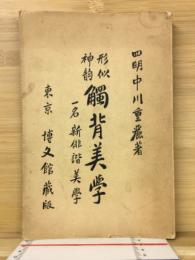 四明中川重麗著
形似
神韵
觸背美学
一名新俳諧美學
東京 博文館藏版